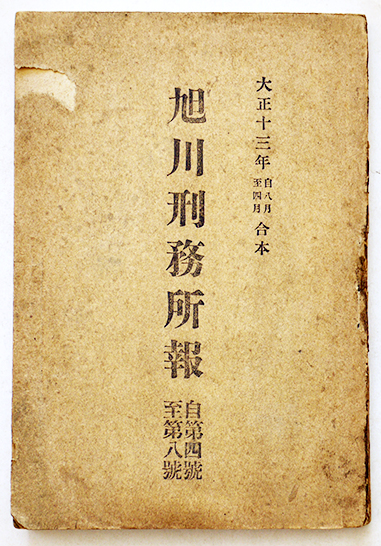 大正十三年自八月至四月合本
旭川刑務所報自第四號至第八號